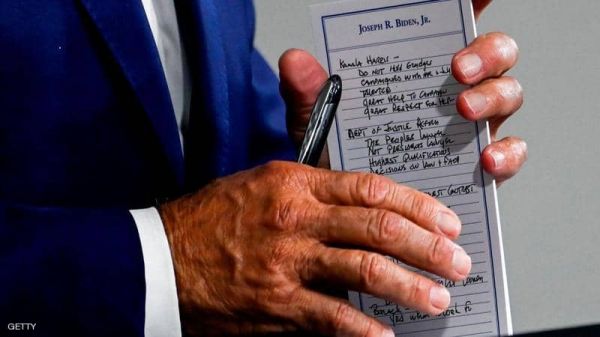 JOSEPH R. BIDEN, JR.
KAMALA HARRIS –
DO NOT HOLD GRUDGES
CAMPAIGNED WITH ME & JILL
TALENTED
GREAT HELP TO CAMPAIGN
GREAT RESPECT FOR HER
DEPT OF JUSTICE
THE PEOPLES LAWYER
NOT PRESIDENTS LAWYER
HIGHEST QUALIFICATIONS
DECISIONS ON LAW & FACT
GETTY